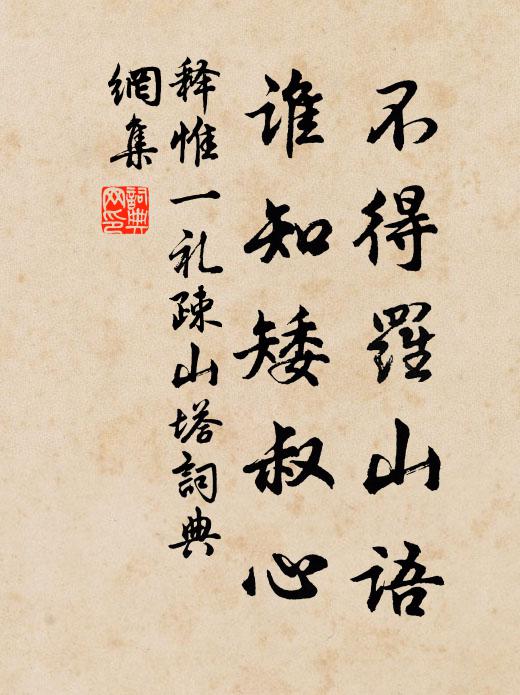 不得羅山語
谁知矮叔心
释惟一礼疎山塔詞典
網集
詞典
网印